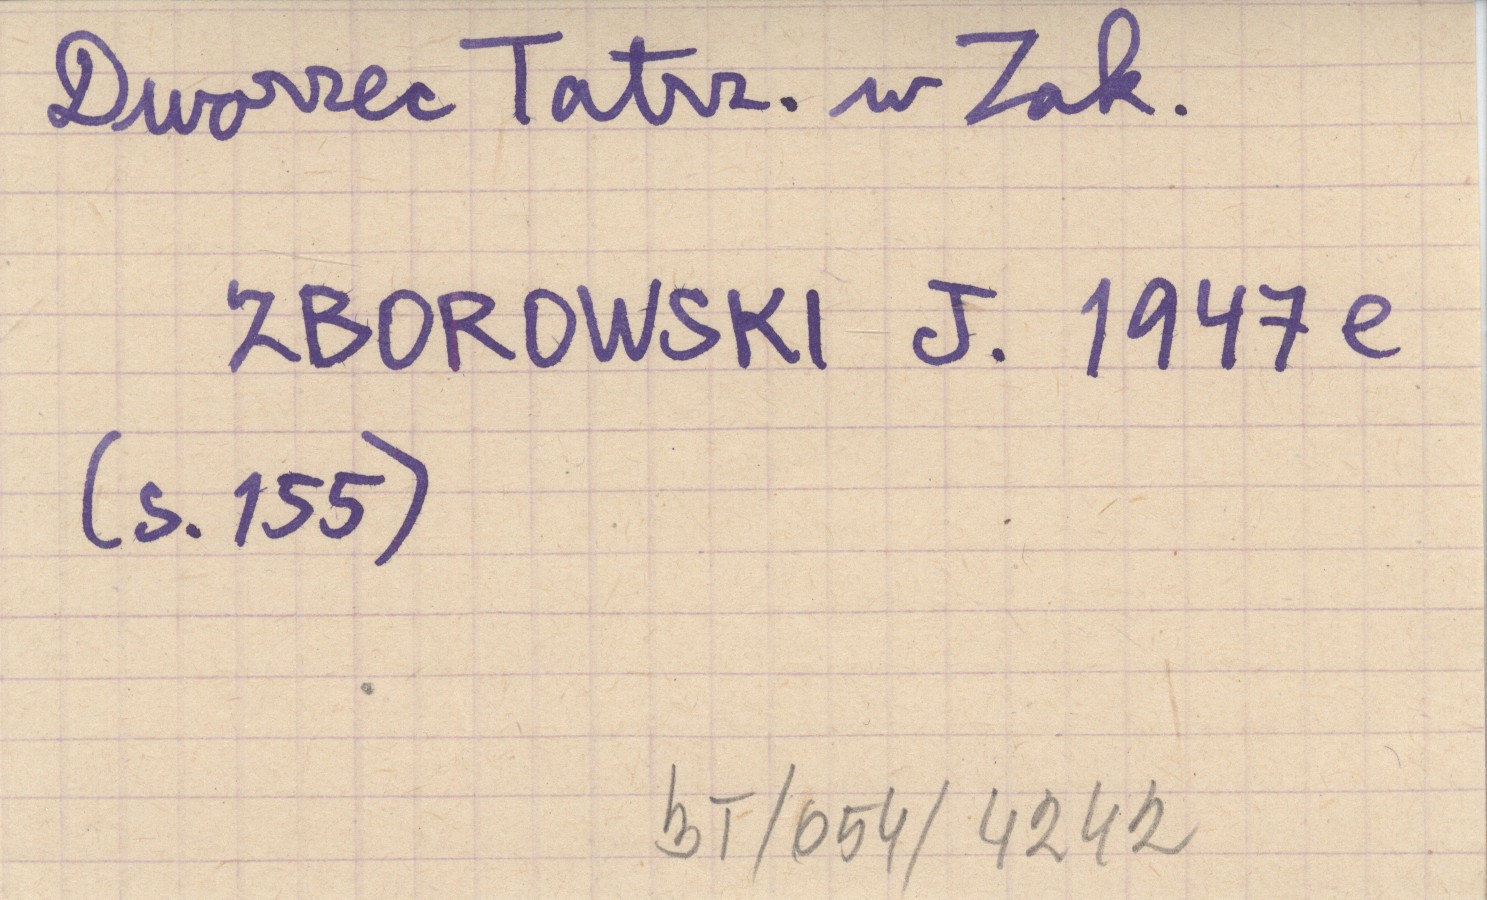 Dworzec Tatrz. w Zak.
ZBOROWSKI J. 1947 e
(s. 155)
BT/054/4242